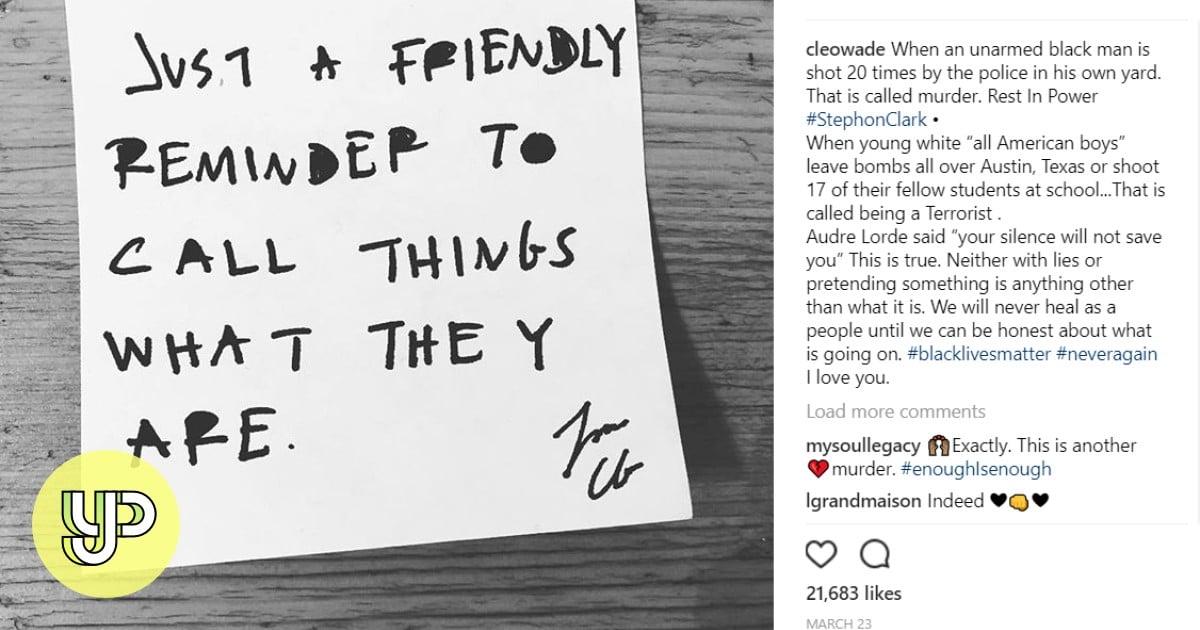 JUST A FRIENDLY
REMINDER TO
CALL THINGS
WHAT THEY
ARE.
YP
cleowade When an unarmed black man is
shot 20 times by the police in his own yard.
That is called murder. Rest In Power
#StephonClark •
When young white “all American boys”
leave bombs all over Austin, Texas or shoot
17 of their fellow students at school...That is
called being a Terrorist .
Audre Lorde said “your silence will not save
you” This is true. Neither with lies or
pretending something is anything other
than what it is. We will never heal as a
people until we can be honest about what
is going on. #blacklivesmatter #neveragain
I love you.
Load more comments
mysoullegacy 🙌Exactly. This is another
💔murder. #enoughIsenough
lgrandmaison Indeed 🖤👊🖤
21,683 likes
MARCH 23